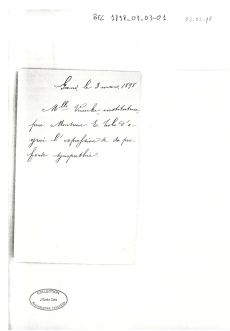 BEL 1898_03_03-01
03.03.98
Gand, le 3 mars 1898
Mlle Vuncke institutrice,
prie Monsieur E. Zola d'a-
gréer l'expression de sa pro-
fonde sympathie.
COLLECTION